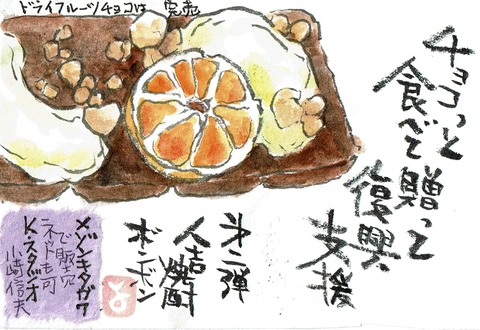 ドライフルーツチョコは 完売
チョコっと
食べて贈って
復興
支援
第二弾
人吉焼酎
ボンボン
メゾンキタガワ
で販売
ネットも可
K・スタヂオ
小崎信夫